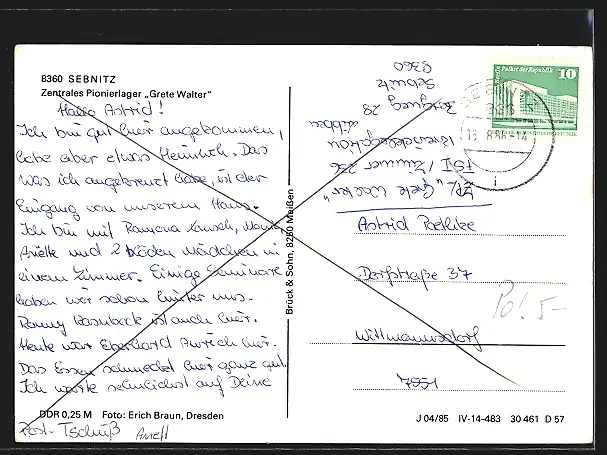 8360 SEBNITZ
Zentrales Pionierlager „Grete Walter"
Hallo Astrid!
Ich bin gut hier angekommen,
habe aber etwas Heimweh. Das
was ich angekreuzt habe, ist der
Eingang von unserem Haus.
Ich bin mit Ramona
und 2 blöden Mädchen in
einem Zimmer. Einige Seminare
haben wir schon hinter uns.
Ronny ist auch hier.
Heute war Eberhard hier.
Das Essen schmeckt hier ganz gut.
Ich warte sehnlichst auf Deine
Post. Tschüß
DDR 0,25 M Foto: Erich Braun, Dresden
Brück & Sohn, 8250 Meißen
Palast der Republik
10
13.8.86-14
ZPL „Grete Walter"
/ Zimmer 256
28
Sebnitz
8360
Astrid
Dorfstraße 37
Wittmannsdorf
7551
Po! 5-
J 04/85 IV-14-483 30 461 D 57